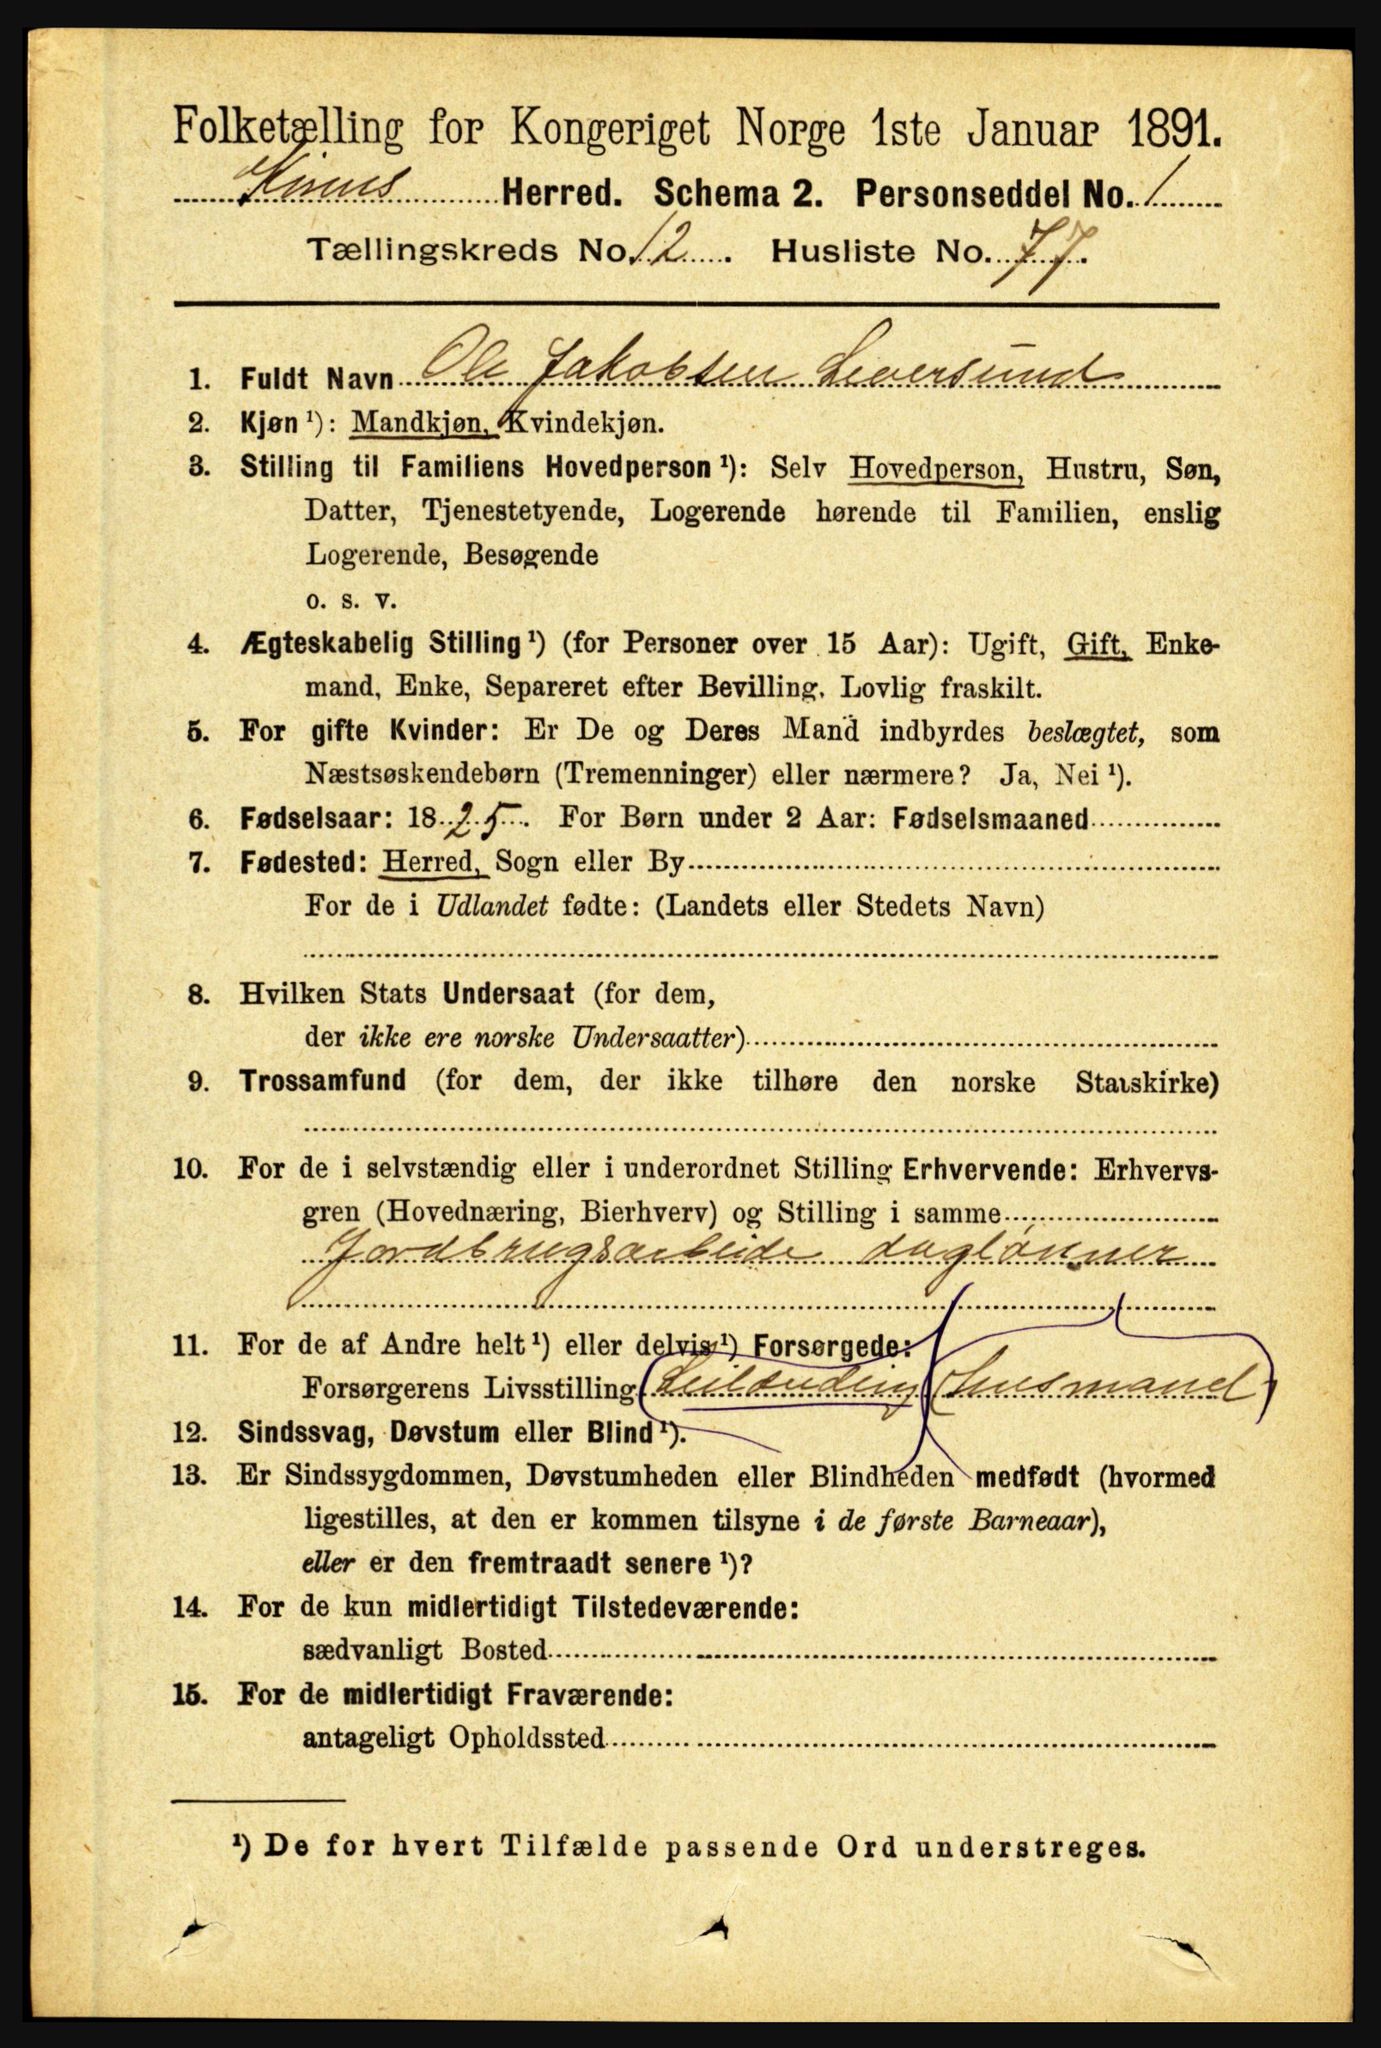 Folketælling for Kongeriget Norge 1ste Januar 1891.
Kinns Herred. Schema 2. Personseddel No. 1
Tællingskreds No. 12. Husliste No. 77.
1. Fuldt Navn Ole Jakobsen Leversund
2. Kjøn ¹): Mandkjøn, Kvindekjøn.
3. Stilling til Familiens Hovedperson ¹): Selv Hovedperson, Hustru, Søn,
Datter, Tjenestetyende, Logerende hørende til Familien, enslig
Logerende, Besøgende
o. s. v.
4. Ægteskabelig Stilling ¹) (for Personer over 15 Aar): Ugift, Gift, Enke-
mand, Enke, Separeret efter Bevilling, Lovlig fraskilt.
5. For gifte Kvinder: Er De og Deres Mand indbyrdes beslægtet, som
Næstsøskendebørn (Tremenninger) eller nærmere? Ja, Nei ¹).
6. Fødselsaar: 1825. For Børn under 2 Aar: Fødselsmaaned
7. Fødested: Herred, Sogn eller By
For de i Udlandet fødte: (Landets eller Stedets Navn)
8. Hvilken Stats Undersaat (for dem,
der ikke ere norske Undersaatter)
9. Trossamfund (for dem, der ikke tilhøre den norske Statskirke)
10. For de i selvstændig eller i underordnet Stilling Erhvervende: Erhvervs-
gren (Hovednæring, Bierhverv) og Stilling i samme
Jordbrugsarbeide daglönner
11. For de af Andre helt ¹) eller delvis ¹) Forsørgede:
Forsørgerens Livsstilling (Leilænding) (Husmand)
12. Sindssvag, Døvstum eller Blind ¹).
13. Er Sindssygdommen, Døvstumheden eller Blindheden medfødt (hvormed
ligestilles, at den er kommen tilsyne i de første Barneaar),
eller er den fremtraadt senere ¹)?
14. For de kun midlertidigt Tilstedeværende:
sædvanligt Bosted
15. For de midlertidigt Fraværende:
antageligt Opholdssted
¹) De for hvert Tilfælde passende Ord understreges.